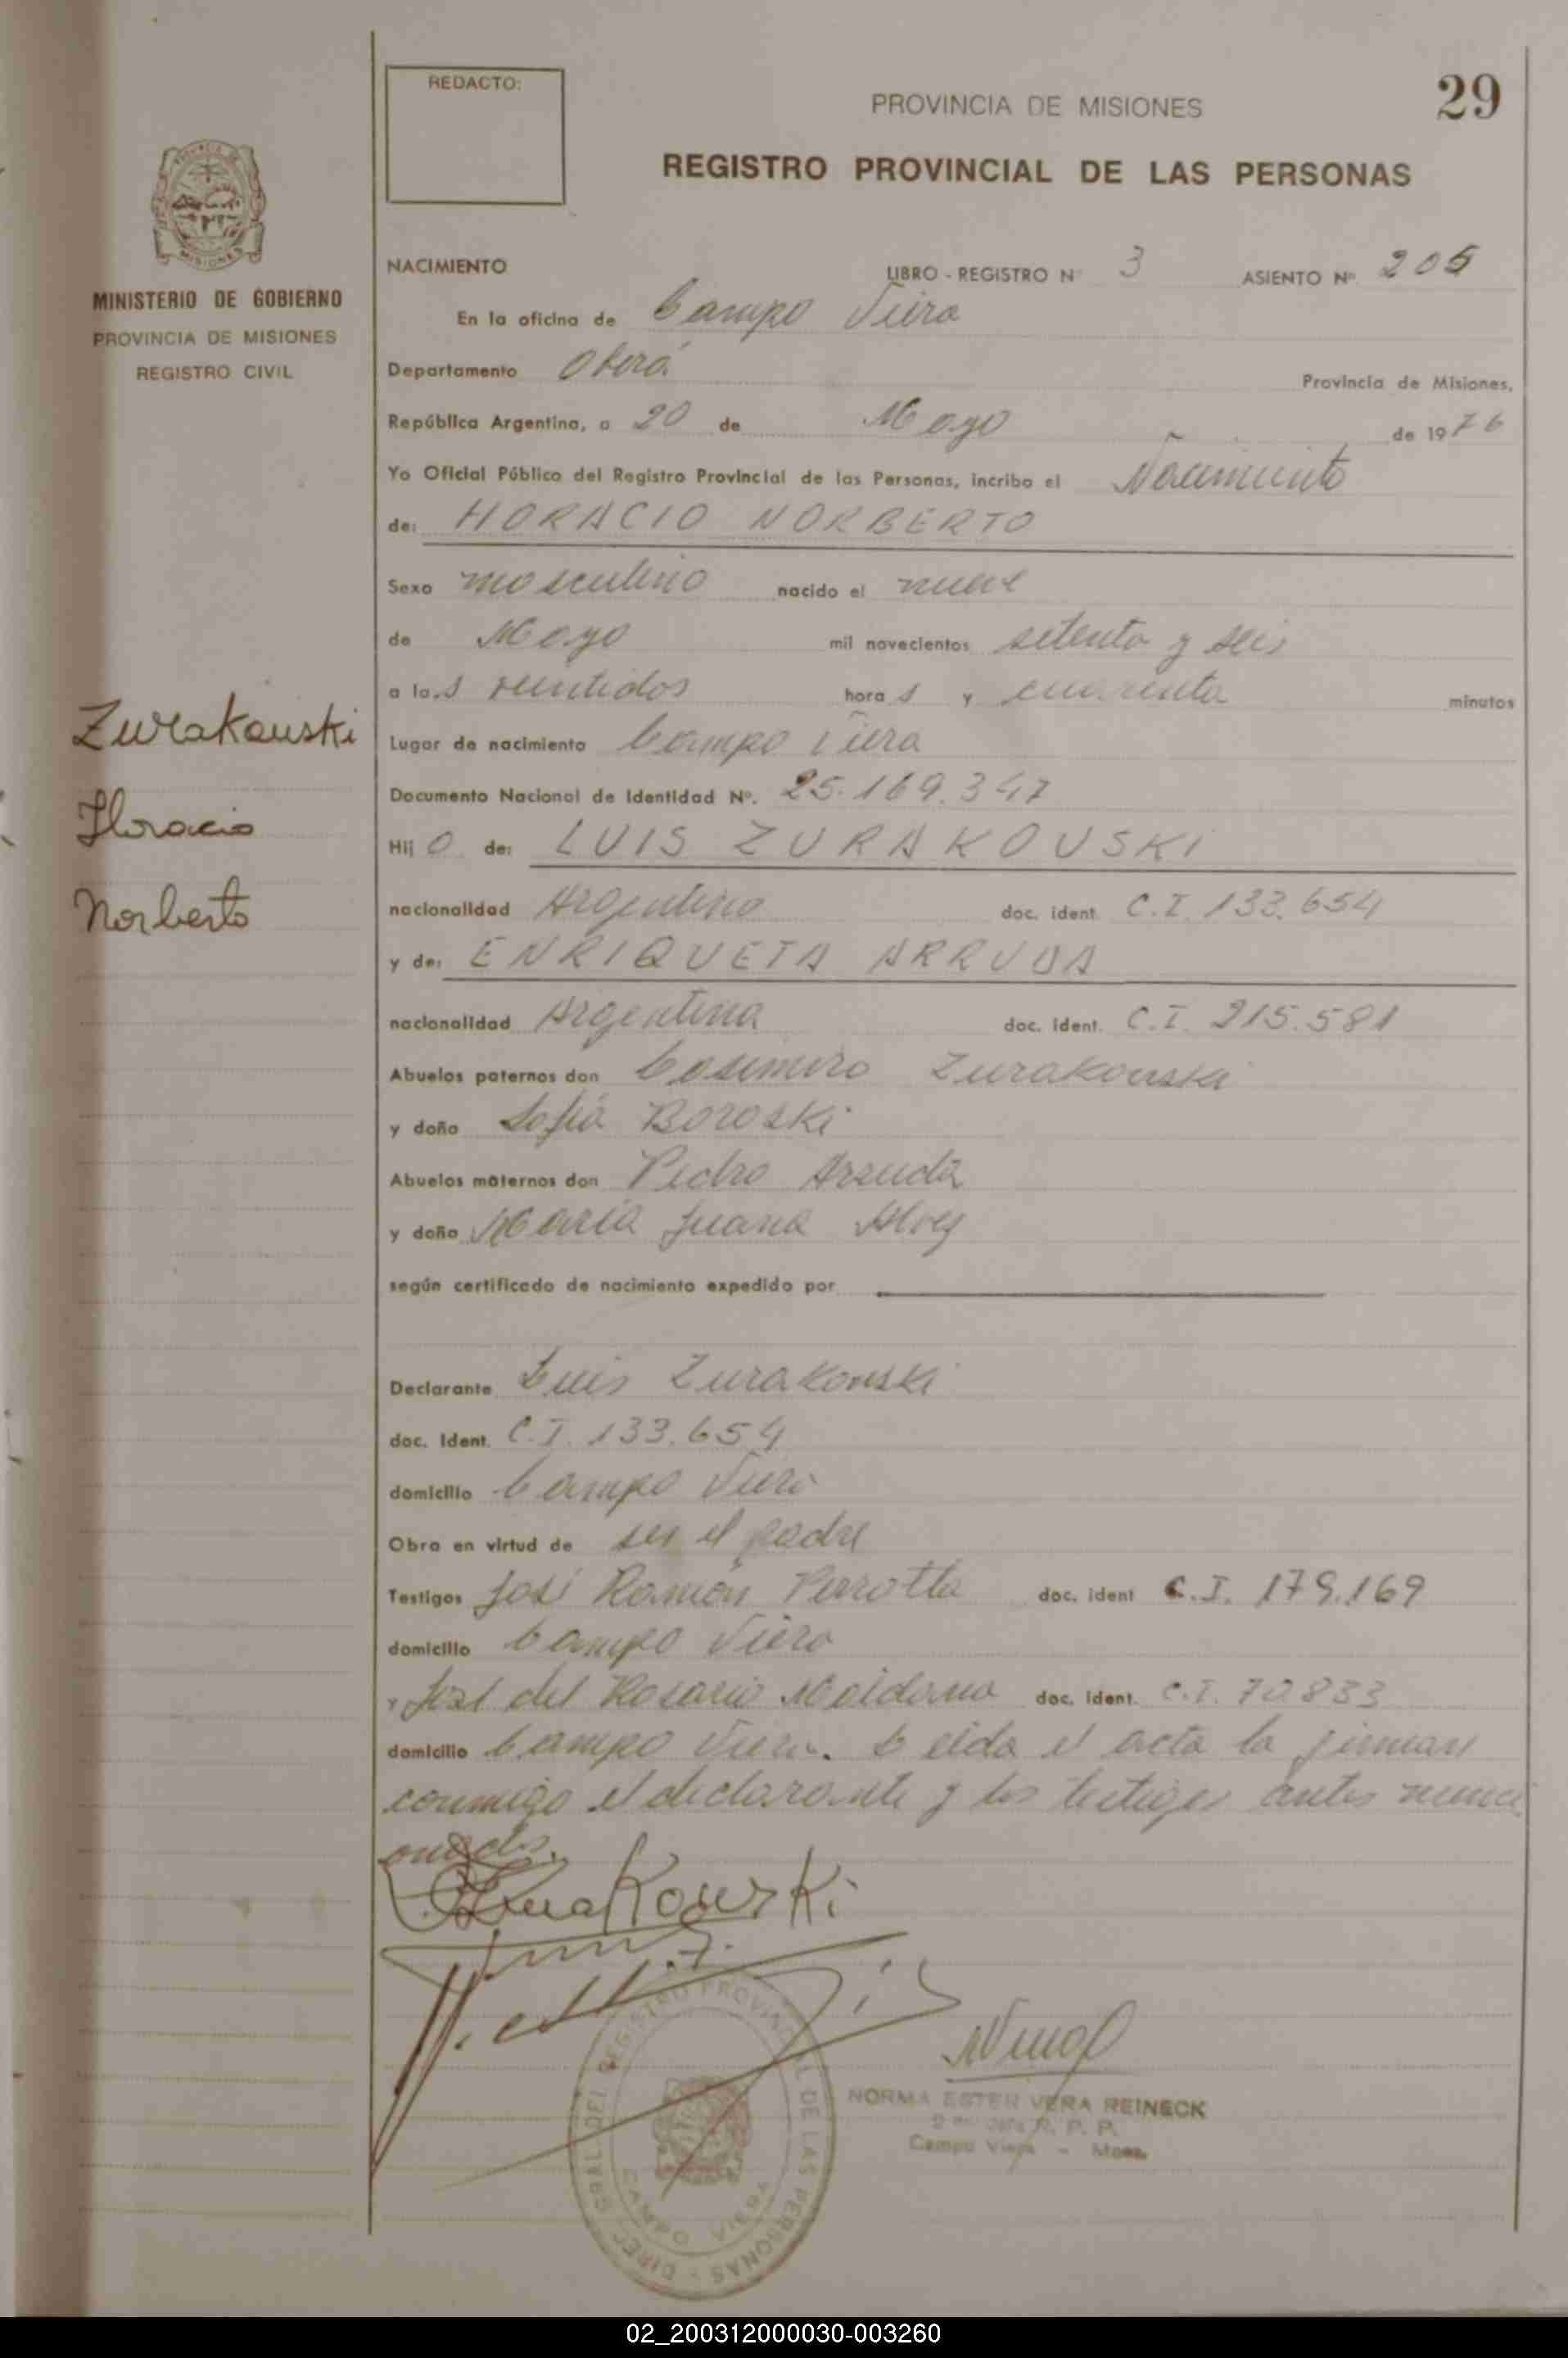 REDACTO:
PROVINCIA DE MISIONES
29
REGISTRO PROVINCIAL DE LAS PERSONAS
MINISTERIO DE GOBIERNO
PROVINCIA DE MISIONES
REGISTRO CIVIL
NACIMIENTO LIBRO - REGISTRO Nº 3 ASIENTO Nº 205
En la oficina de Campo Viera
Departamento Oberá Provincia de Misiones,
República Argentina, a 20 de Mayo de 1976
Yo Oficial Público del Registro Provincial de las Personas, incribo el Nacimiento
de: HORACIO NORBERTO
Sexo masculino nacido el nueve
de Mayo mil novecientos setenta y seis
a las veintidos horas y cuarenta minutos
Lugar de nacimiento Campo Viera
Documento Nacional de Identidad Nº. 25.169.347
Hijo de: LUIS ZURAKOUSKI
nacionalidad Argentino doc. ident. C.I. 133.654
y de: ENRIQUETA ARRUDA
nacionalidad Argentina doc. ident. C.I. 215.581
Abuelos paternos don Casimiro Zurakouski
y doña Sofia Boroski
Abuelos maternos don Pedro Arruda
y doña María Juana Alves
según certificado de nacimiento expedido por
Declarante Luis Zurakouski
doc. Ident. C.I. 133.654
domicilio Campo Viera
Obra en virtud de ser el padre
Testigos José Ramón Perrotta doc. ident C.I. 179.169
domicilio Campo Viera
y José del Rosario Maidana doc. ident. C.I. 70.833
domicilio Campo Viera. Leida el acta la firman
conmigo el declarante y los testigos antes menci
onados.
Zurakouski
Horacio
Norberto
Zurakowski
NORMA ESTER VERA REINECK
R. P. P.
Campo Viera - Mnes.
DIREC. GRAL. DEL REGISTRO PROVINCIAL DE LAS PERSONAS
CAMPO VIERA
02_200312000030-003260